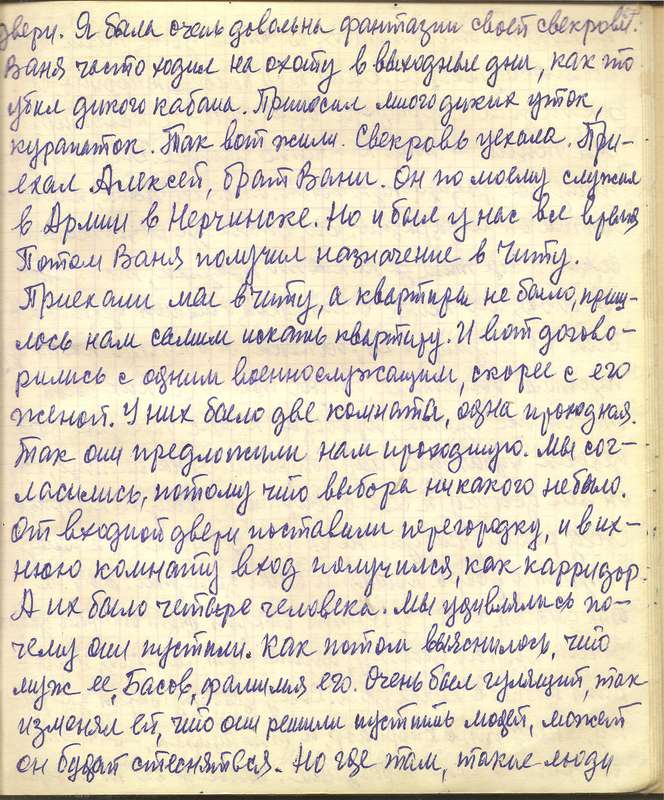 двери. Я была очень довольна фантазии своей свекрови.
Ваня часто ходил на охоту в выходные дни, как то
убил дикого кабана. Приносил много диких уток,
курапаток. Так вот жили. Свекровь уехала. При-
ехал Алексей, брат Вани. Он по моему служил
в Армии в Нерчинске. Но и был у нас все время
Потом Ваня получил назначение в Читу.
Приехали мы в Читу, а квартиры не было, приш-
лось нам самим искать квартиру. И вот догово-
рились с одним военнослужащим, скорее с его
женой. У них было две комнаты, одна проходная.
Так они предложили нам проходную. Мы сог-
ласились, потому что выбора никакого небыло.
От входной двери поставили перегородку, и в их-
нюю комнату вход получился, как карридор.
А их было четыре человека. Мы удивлялись по-
чему они пустили. Как потом выяснилось, что
муж ее, Басов, фамилия его. Очень был гулящий, так
изменял ей, что они решили пустить людей, может
он будет стесняться. Но где там, такие люди